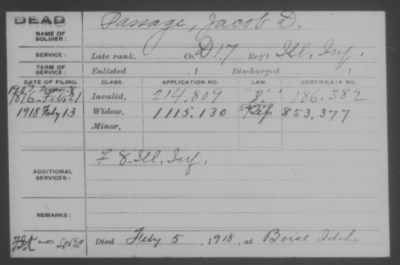 DEAD
NAME OF SOLDIER: Passage, Jacob D.
SERVICE: Late rank, Co. D 17 Reg't Ill. Inf.
TERM OF SERVICE: Enlisted , 1 Discharged , 1
DATE OF FILING. CLASS. APPLICATION NO. LAW. CERTIFICATE NO.
1876 Feb. 21 Invalid, 214.809 186.382
1918 Feby 13 Widow, 1115.130 853,377
Minor,
ADDITIONAL SERVICES: F 8. Ill. Inf.
REMARKS:
Died Feby 5, 1918, at Boise Idaho